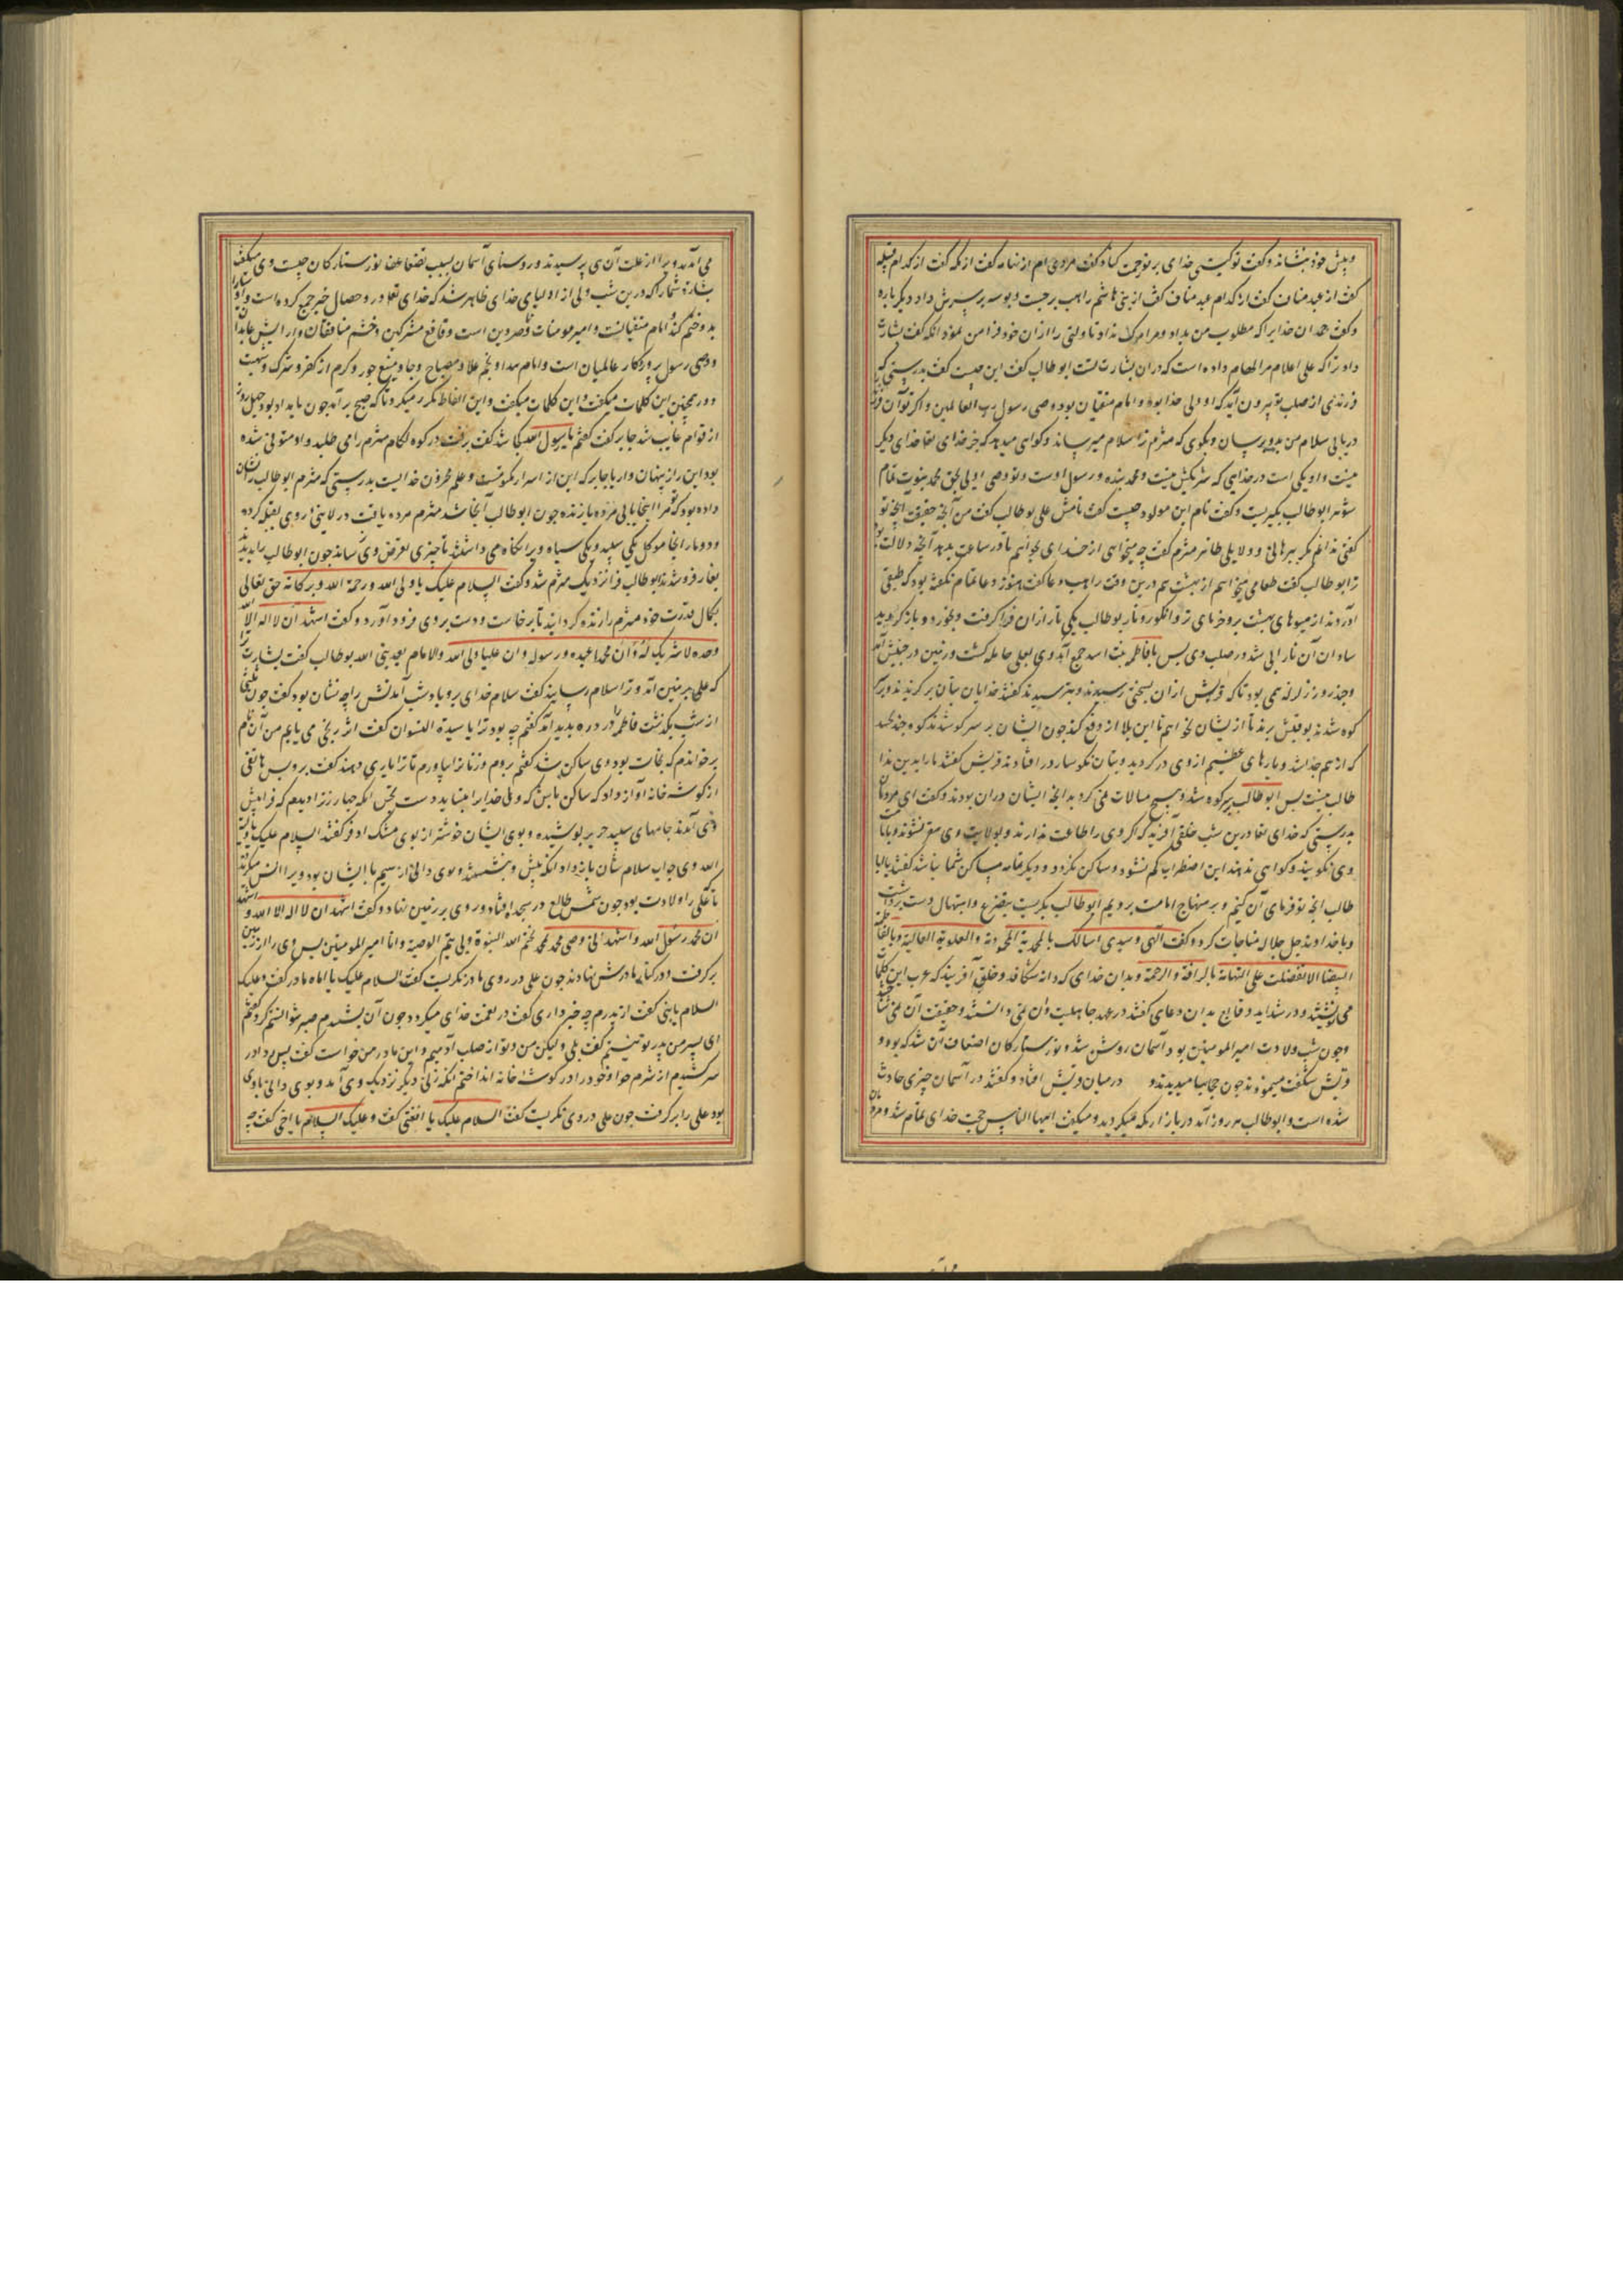 و پیش خود بنشاند و گفت تو کیستی خدای بر تو رحمت کناد گفت مردی ام از تهامه گفت از مکه گفت از کدام قبیله
گفت از عبد مناف گفت از کدام عبد مناف گفت از بنی هاشم راهب برجست و بوسه بر سرش داد دیگر باره
و گفت حمد آن خدایرا که مطلوب من بداد و مرا مرگ نداد تا ولی را از آن خود فرا من نمود آنکه گفت بشارت
داد ترا که علی اعلام مرا الهام داده است که در آن بشارت تست ابو طالب گفت این چیست گفت بدرستی که
فرزندی از صلب تو بیرون آید که او ولی خدا بود و امام متقیان بود و وصی رسول رب العالمین و اگر تو آن فرزند
دریابی سلام من بدو برسان و بگوی که مثرم ترا سلام میرساند و گواهی میدهد که جز خدای تعا خدای دیگر
نیست و او یکی است در خدایی که شریکش نیست و محمد بنده و رسول اوست و تو وصی اویی بحق بمحمد نبوت تمام
شود ابو طالب بگریست و گفت نام این مولود چیست گفت نامش علی بو طالب گفت من آنچه حقیقت آنچه تو
گفتی ندانم مگر ببرهانی و دلایلی ظاهر مثرم گفت چه میخواهی از خدای بخواهم تا در ساعت بدهد آنچه دلالت بود
ترا بو طالب گفت طعامی میخواهم از بهشت هم درین وقت راهب دعا گفت هنوز دعا تمام نگفته بود که طبقی
آوردند از میوهای بهشت برو خرمای تر و انگور و نار بو طالب یکی نار از آن فرا گرفت و بخورد و باز گردید
شادان آن نار آبی شد در صلب وی پس با فاطمه بنت اسد جمع آمد وی بعلی حامله گشت و زمین در جنبش آمد
و چند روز زلزله می بود تا که قریش از آن بسختی رسیدند و بترسیدند گفتند خدایان تان برگیرید و بر
کوه شدند بو قبیس بریم تا از ایشان بخواهیم تا این بلا از ما دفع کنند چون ایشان بر سر کوه شدند کوه جنبید
که از هم جدا شد و پارهای عظیم از وی در گردید و بتان نگوسار در افتادند قریش گفتند ما را بدین بلا
طالب نیست پس ابو طالب بر کوه شد و هیچ مبالات نمی کرد بدانچه ایشان در آن بودند و گفت ای مردمان
بدرستی که خدای تعا درین شب خلقی آفرید که اگر وی را طاعت ندارند و بولایت وی مقر نشوند و بامامت
وی نگویند و گواهی ندهند این اضطراب کم نشود و ساکن نگردد و دیگر تهامه مساکن شما نباشد گفتند یا ابا
طالب آنچه تو فرمای آن کنیم و بر منهاج امامت برویم ابو طالب بگریست بتضرع و ابتهال دست برداشت
و با خداوند جل جلاله مناجات کرد و گفت الهی و سیدی اسالک بالمحمدیة المحمودة و العلویة العالیة و بالفاطمیة
البیضا الا تفضلت علی التهامة بالرافة و الرحمة و بدان خدای که دانه شکافد و خلق آفریند که عرب این کلمات
می نوشتند و در شداید و وقایع بدان دعای گفتند در عهد جاهلیت و آن نمی دانستند و حقیقت آن نمی شناختند
و چون شب ولادت امیر المومنین بود آسمان روشن شد و نور ستارگان اضعاف آن شد که بود و
قریش شگفت مینمودند چون عجایبها میدیدند و در میان قریش افتاد و گفتند در آسمان چیزی حادث
شده است و ابو طالب هر روز آمد در بازار مکه میگردید و میگفت ایها الناس حجت خدای تمام شد و مردمان
می آمدند و ویرا از علت آن می پرسیدند و روشنای آسمان بسبب تضاعف نور ستارگان چیست وی میگفت
بشارت شما را که درین شب ولی از اولیای خدای ظاهر شد که خدای تعا در و خصال خیر جمع کرده است و اوصیا را
بدو ختم کند امام متقیانست و امیر مومنان و ناصر دین است و قامع مشرکین و خشم منافقان و آرایش عابدان
و وصی رسول پروردگار عالمیان است و امام هدا و نجم علا و مصباح دجا و منبع جود و کرم از کفر و شرک و شبهت
دور همچنین این کلمات میگفت و این الفاظ مکرر میکرد تا که صبح برآمد چون بامداد بود چهل روز
از قوام غایب شد جابر گفت گفتم یا رسول الله کجا شد گفت برفت در کوه لکام مثرم را می طلبید و او متوفی شده
بود این راز پنهان دار یا جابر که این از اسرار مکنونست و علم مخزون خدایست بدرستی که مثرم ابو طالب را نشان
داده بود که تو مرا اینجا یابی مرده یا زنده چون ابو طالب آنجا شد مثرم مرده یافت در لابنی روی بقبله کرده
و دو مار آنجا موکل یکی سپید و یکی سیاه ویرا نگاه می داشتند تا چیزی تعرض وی نرساند چون ابو طالب را بدیدند
بغار فرو شدند ابو طالب فرا نزدیک مثرم شد و گفت السلام علیک یا ولی الله و رحمة الله و برکاته حق تعالی
بکمال قدرت خود مثرم را زنده گردانید تا برخاست و دست بروی فرود آورد و گفت اشهد ان لا اله الا الله
وحده لا شریک له و ان محمدا عبده و رسوله و ان علیا ولی الله و الامام بعد نبی الله بو طالب گفت بشارت ترا
که علی بر زمین آمد و ترا سلام رسانید گفت سلام خدای برو باد شب آمدنش را چه نشان بود گفت چون ثلثی
از شب بگذشت فاطمه را درد پدید آمد گفتم چه بود ترا یا سیدة النسوان گفت اثر رنجی می یابم من آن نام
برخواندم که نجات بود وی ساکن شد گفتم بروم و زنان را بیاورم تا ترا یاری دهند گفت برو پس هاتفی
از گوشه خانه آواز داد که ساکن باش که ولی خدایرا نباید دست نجس آنگه چهار زن را دیدم که فرا پیش
وی آمدند جامهای سپید حریر پوشیده و بوی ایشان خوشتر از بوی مشک اذفر گفتند السلام علیک یا ولیة
الله وی جواب سلام شان باز داد آنگه پیش وی بنشستند و بوی دانی از سیم با ایشان بود ویرا انس میکردند
تا علی را ولادت بود چون شمس طالع در سجده افتاد و روی بر زمین نهاد و گفت اشهد ان لا اله الا الله و اشهد
ان محمد رسول الله و اشهد انی وصی محمد بمحمد یختم الله النبوة و بی یتم الوصیة و انا امیر المومنین پس وی را از زمین
برگرفت و در کنار مادرش نهاد چون علی در روی مادر نگریست گفت السلام علیک یا اماه مادر گفت و علیک
السلام یا بنی گفت از پدرم چه خبر داری گفت در نعمت خدای میگردد چون آن بشنیدم صبر نتوانستم کرد گفتم
ای پسر من پدر تو نیستم گفت بلی و لیکن من و تو از صلب آدمیم و این مادر من حوا است گفت پس ردا در
سر کشیدم از شرم حوا و خود را در گوشه خانه انداختم آنگه زنی دیگر نزدیک وی آمد و بوی دانی با وی
بود علی را برگرفت چون علی در وی نگریست گفت السلام علیک یا اختی گفت و علیک السلام یا اخی گفت چه